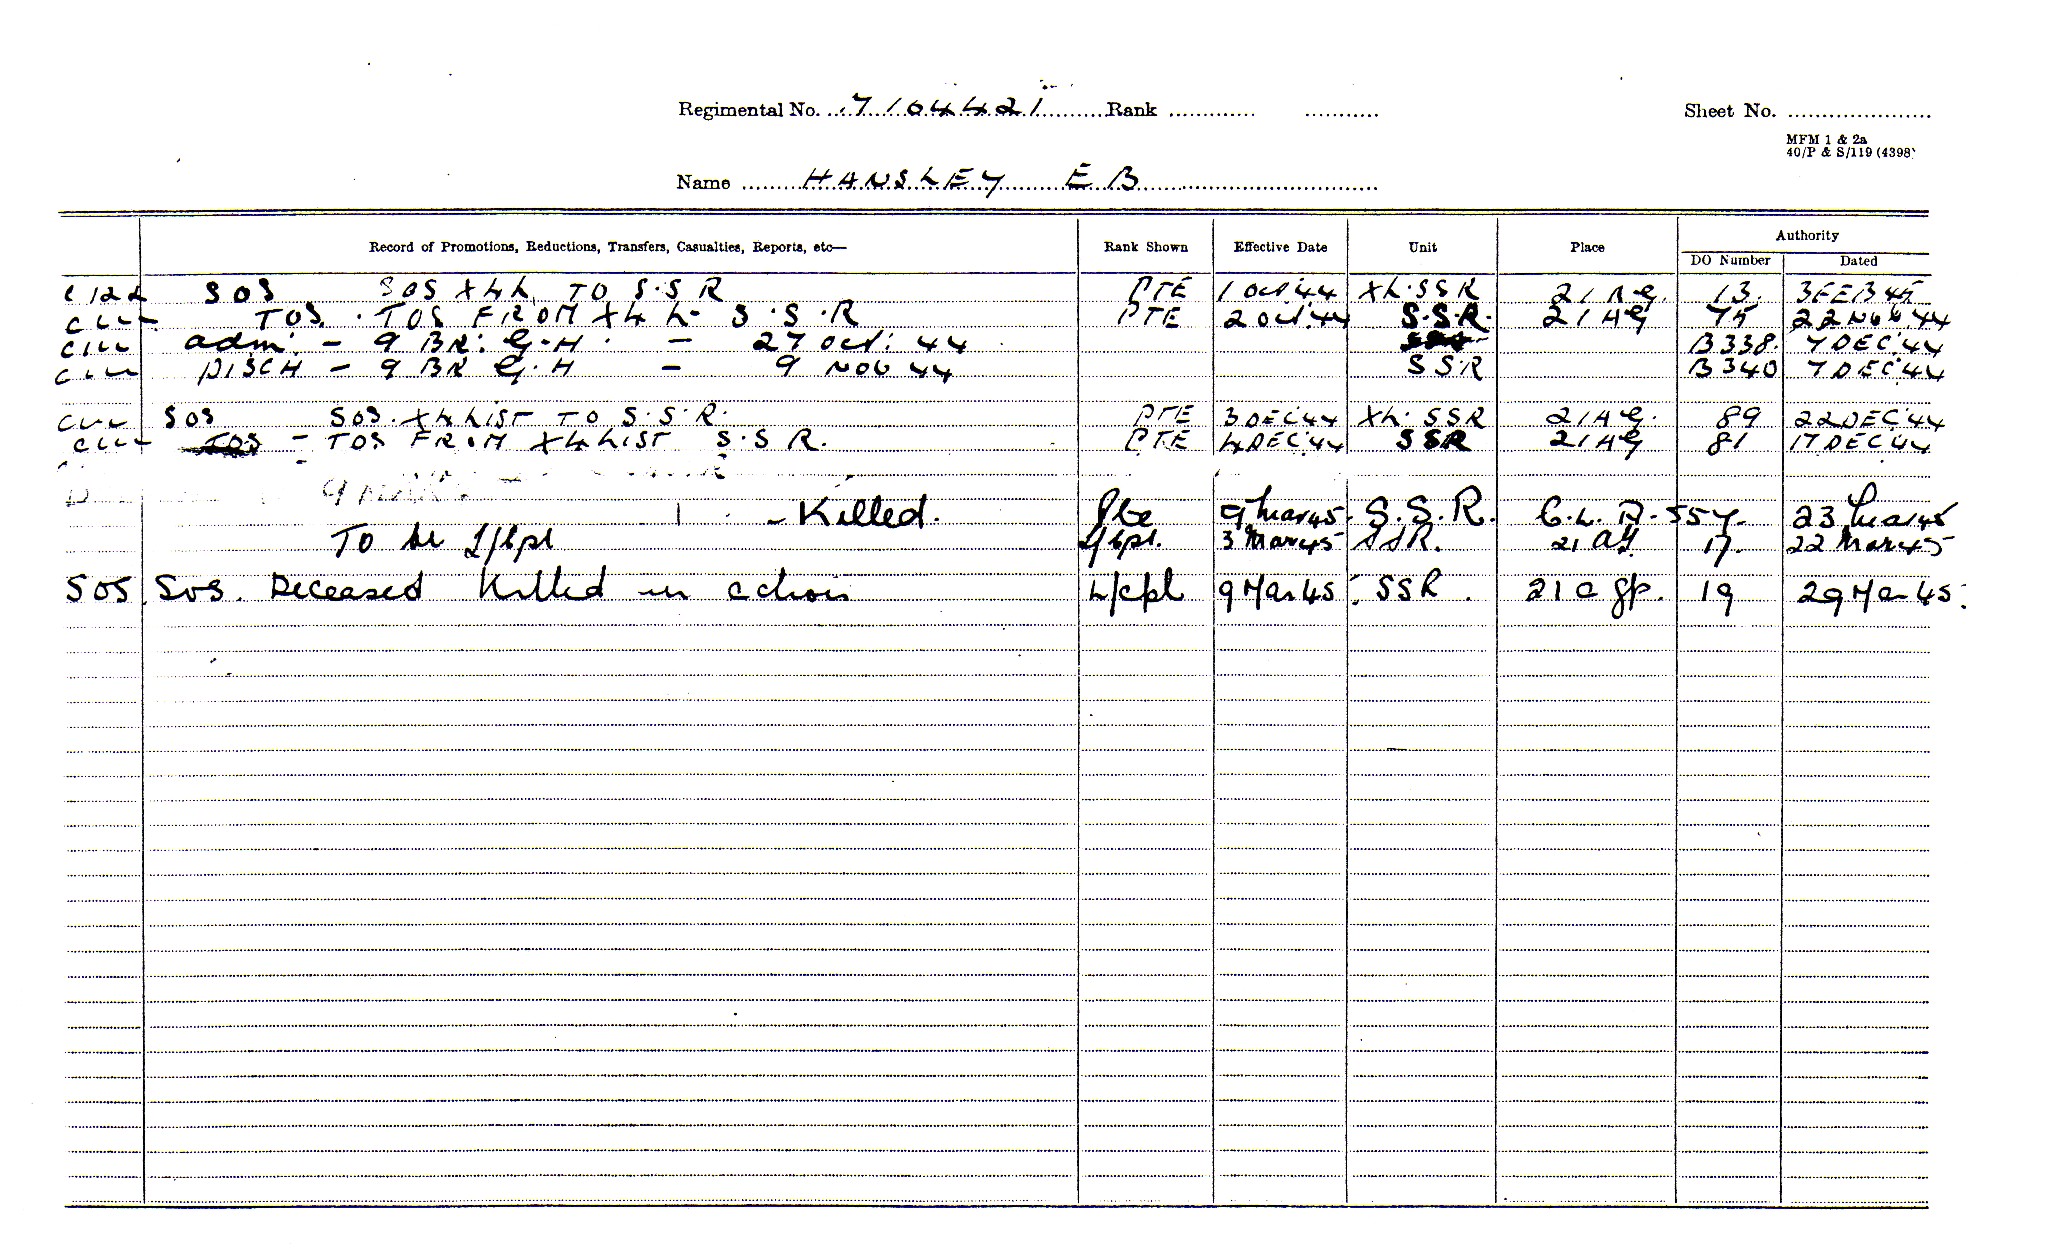 Regimental No. 7104421 Rank Sheet No.
MFM 1 & 2a
40/P & S/119 (4398)
Name HANSLEY E B
Record of Promotions, Reductions, Transfers, Casualties, Reports, etc— Rank Shown Effective Date Unit Place Authority
DO Number Dated
SOS SOS X4L TO S.S.R PTE 1 Oct 44 X4.SSR 21 AG. 13. 3 FEB 45
TOS. TOS FROM X4 L- S.S.R PTE 2 Oct 44 S.S.R. 21 AG 75 22 NOV 44
adm. - 9 BR. G.H. - 27 Oct. 44 B338. 7 DEC 44
DISCH - 9 BR G.H - 9 NOV 44 SSR B340 7 DEC 44
SOS SOS. X4 LIST TO S.S.R. PTE 3 DEC 44 X4. SSR 21 AG. 89 22 DEC 44
TOS - TOS FROM X4 LIST S.S R. PTE 4 DEC 44 SSR 21 AG 81 17 DEC 44
- Killed. Pte 9 Mar 45. S.S.R. C.L. A. 557. 23 Mar 45
To be L/Cpl L/Cpl. 3 Mar 45 SSR. 21 AG. 17. 22 Mar 45
SOS. SOS. Deceased Killed in action L/cpl 9 Mar 45. SSR. 21 a gp. 19 29 Mar 45.